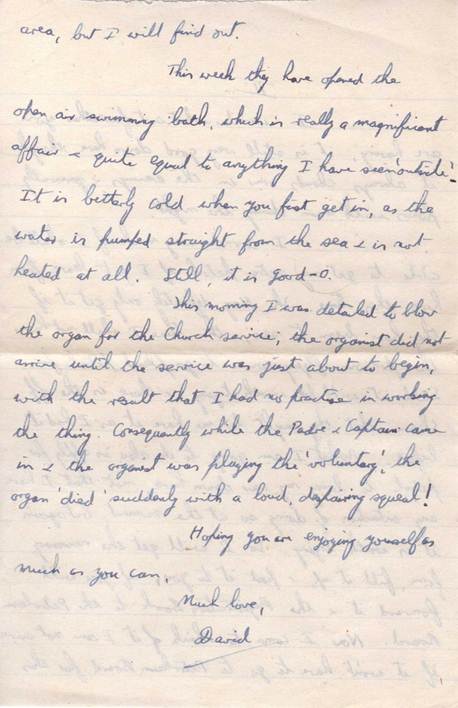 area, but I will find out.
This week they have opened the
open air swimming bath, which is really a magnificent
affair & quite equal to anything I have seen 'outside'.
It is betterly cold when you first get in, as the
water is pumped straight from the sea & is not
heated at all. Still, it is good-o.
This morning I was detailed to blow
the organ for the Church service; the organist did not
arrive until the service was just about to begin,
with the result that I had no practise in working
the thing. Consequently while the Padre & Captain came
in & the organist was playing the 'voluntary', the
organ 'died' suddenly with a loud, despairing squeal!
Hoping you are enjoying yourself as
much as you can,
Much love,
David